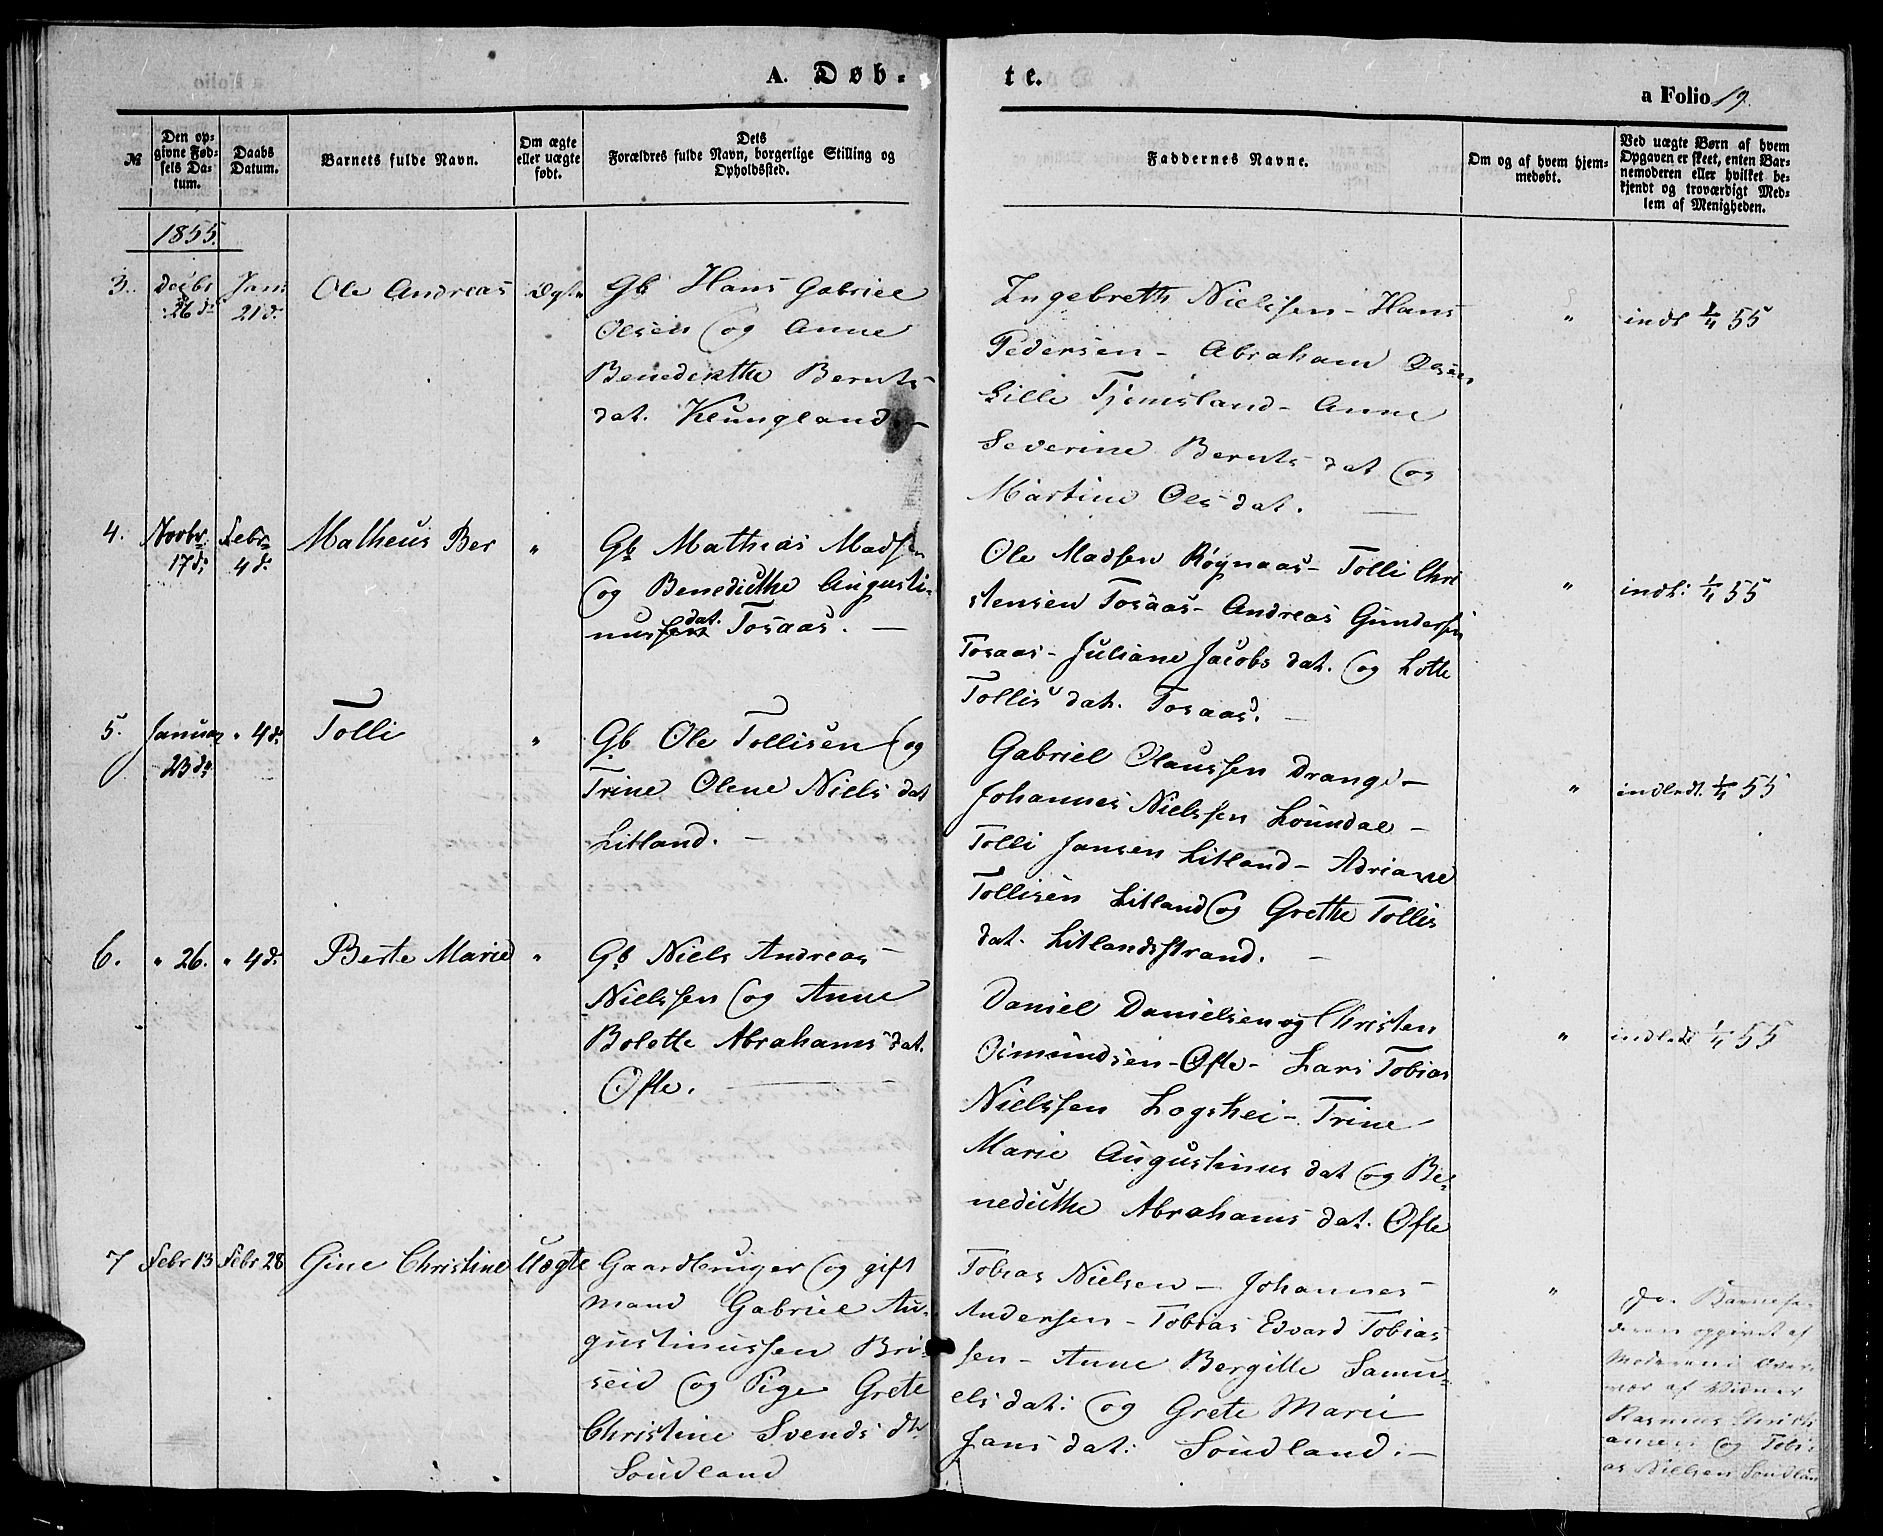 A. Døb-
te.
a Folio 19.
№
Den op-
givne Fød-
sels Da-
tum.
Daabs
Datum.
Barnets fulde Navn.
Om ægte
eller uægte
født.
Dets
Forældres fulde Navn, borgerlige Stilling og
Opholdssted.
Faddernes Navne.
Om og af hvem hjem-
medøbt.
Ved uægte Børn af hvem
Opgaven er skeet, enten Bar-
nemoderen eller hvilket be-
kjendt og troværdigt Med-
lem af Menigheden.
1855.
3.
Decbr
26 d.
Jan.
21 d.
Ole Andreas
Ægte
Gb Hans Gabriel
Olsen og Anne
Benedikthe Bernts
dat. Klungland. –
Ingebreth Nielssen – Hans
Pedersen – Abraham Olsen
Lille Tjomsland – Anne
Severine Bernts dat og
Martine Olsdat. –
"
indt ¼ 55
4.
Novbr.
17 d.
Febr.
4 d.
Matheus Ber
"
Gb Mathias Madsen
og Benedicthe Augusti-
nussen dat. Tosaas. –
Ole Madsen Røynaas – Tolli Chri
stensen Tosaas – Andreas Gundersen
Tosaas – Juliane Jacobs dat. og Lotte
Tollis dat. Tosaas. –
"
indt: ¼ 55
5.
Januar
23 d.
" 4 d.
Tolli
"
Gb Ole Tollisen og
Trine Olene Niels dat
Litland. –
Gabriel Olaussen Drange –
Johannes Nielssen Loundal –
Tolli Jansen Litland – Adriane
Tollisen Litland og Grethe Tollis
dat. Litlandsstrand. –
"
indledt. ¼ 55
6.
" 26.
" 4 d.
Berte Marie
"
Gb Niels Andreas
Nielssen og Anne
Bolette Abrahams dat.
Øfte. –
Daniel Danielsen og Christen
Osmundsen – Øfte – Lars Tobias
Nielssen Logshei – Trine
Marie Augustinus dat og Be-
nedicthe Abrahams dat. Øfte
"
indledt ¼ 55
7
Febr 13
Febr 28
Gine Christine
Uægte
Gaardbruger og gift
mand Gabriel Au-
gustinussen Bri-
seid og Pige Grete
Christine Svends dtr
Soudland
Tobias Nielsen – Johannes
Andersen – Tobias Edvard Tobias
sen – Anne Bergitte Samu-
els dat: og Grete Marie
Jans dat: Soudland. –
"
Jo. Barnefa-
deren opgivet af
Moderen i Over-
vær af Vidner
Rasmus Christi
ansen og Tobi-
as Nielsen Soudland